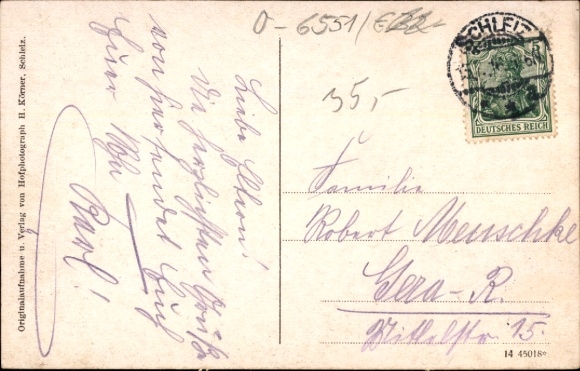 O-6551/E
35,-
SCHLEIZ
5
DEUTSCHES REICH
Liebe Eltern!
Die herzlichsten Grüße
von hier sendet Euch
Euer
Karl!
Familie
Robert Meuschke
Gera-R.
15.
Originalaufnahme u. Verlag von Hofphotograph H. Körner, Schleiz.
14 45018